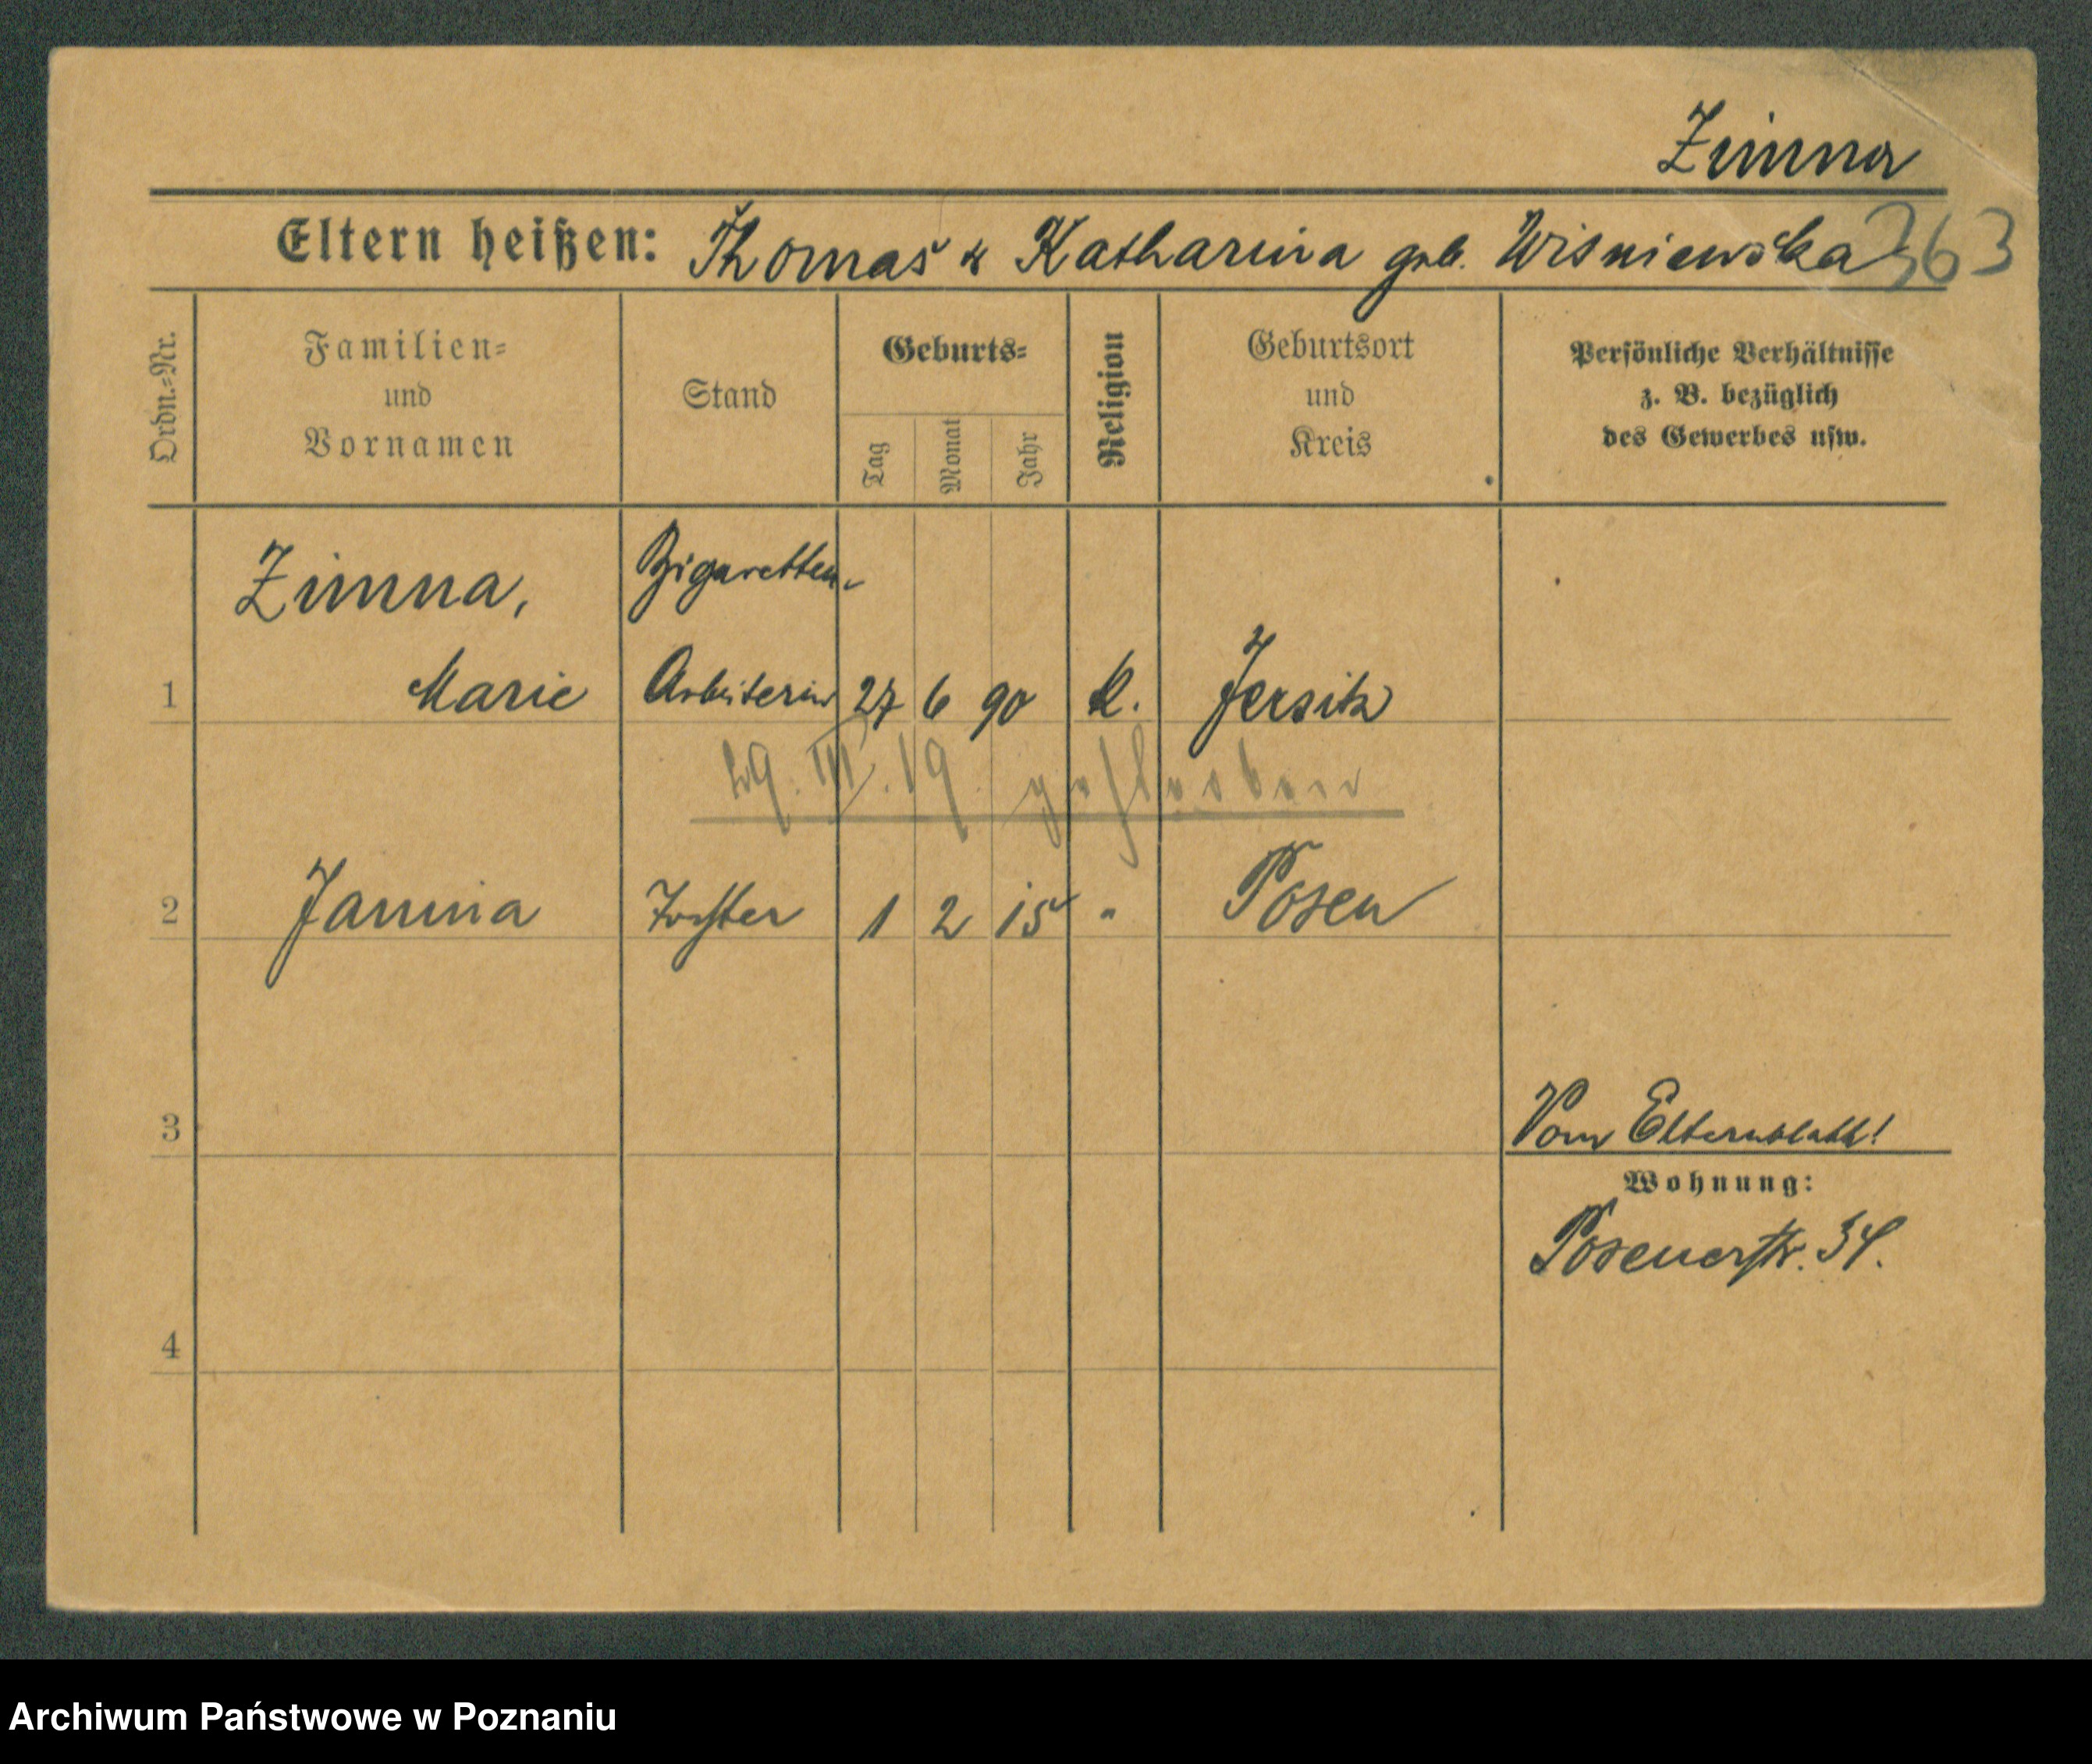 Zimna
Eltern heißen: Thomas & Katharina geb. Wisniewska 363
Ordn.=Nr.
Familien=
und
Vornamen
Stand
Geburts=
Tag
Monat
Jahr
Religion
Geburtsort
und
Kreis
Persönliche Verhältnisse
z. B. bezüglich
des Gewerbes usw.
Zimna, Zigaretten-
1 Marie Arbeiterin 27 6 90 k. Jersitz
29. III. 19 gestorben
2 Janina Tochter 1 2 15 " Posen
3 Vom Elternblatt!
Wohnung:
Posenerstr. 34.
4
Archiwum Państwowe w Poznaniu